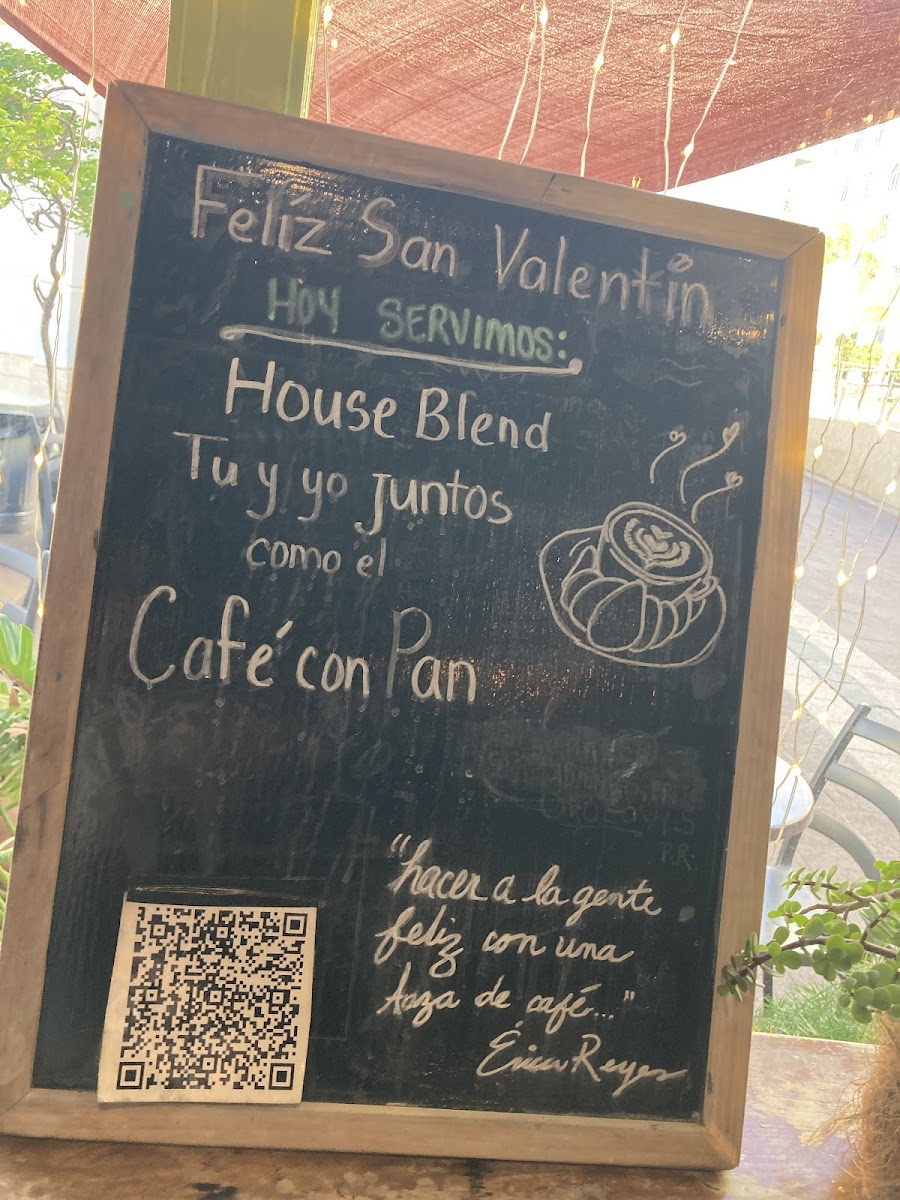 Felíz San Valentín
HOY SERVIMOS:
House Blend
Tu y yo juntos
como el
Café con Pan
P.R.
"hacer a la gente
feliz con una
taza de café..."
Érica Reyes